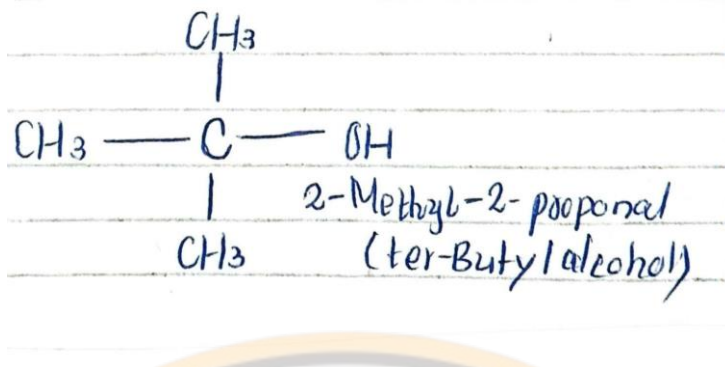 CH3
CH3 — C — OH
2-Methyl-2-proponal
CH3
(ter-Butyl alcohol)